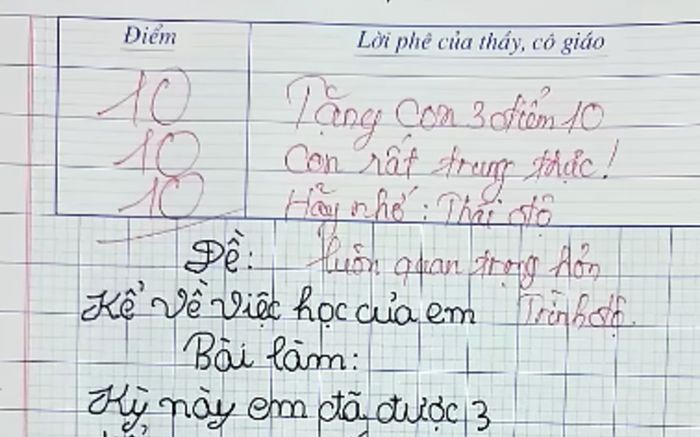 Điểm
Lời phê của thầy, cô giáo
10
10
10
Tặng con 3 điểm 10
Con rất trung thực!
Hãy nhớ: Thái độ
luôn quan trọng hơn
Trình độ.
Đề:
Kể về việc học của em
Bài làm:
Kỳ này em đã được 3